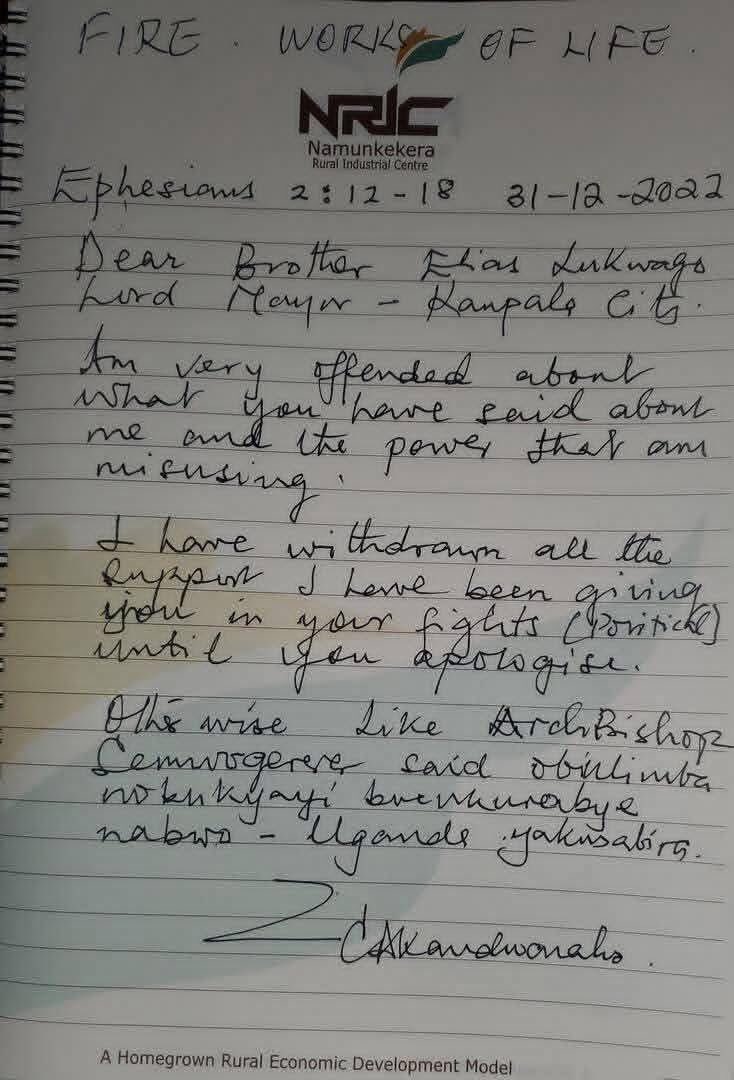 FIRE. WORKS OF LIFE.
NRIC
Namunkekera
Rural Industrial Centre
Ephesians 2:12-18 31-12-2022
Dear Brother Elias Lukwago
Lord Mayor - Kampala City.
Am very offended about
what you have said about
me and the power that am
misusing.
I have withdrawn all the
support I have been giving
you in your fights (Political)
until you apologise.
Otherwise Like ArchBishop
Semwogerere said obulimba
nobukyayi
nabwo - Uganda yakusabira.
CAKandwonaho.
A Homegrown Rural Economic Development Model